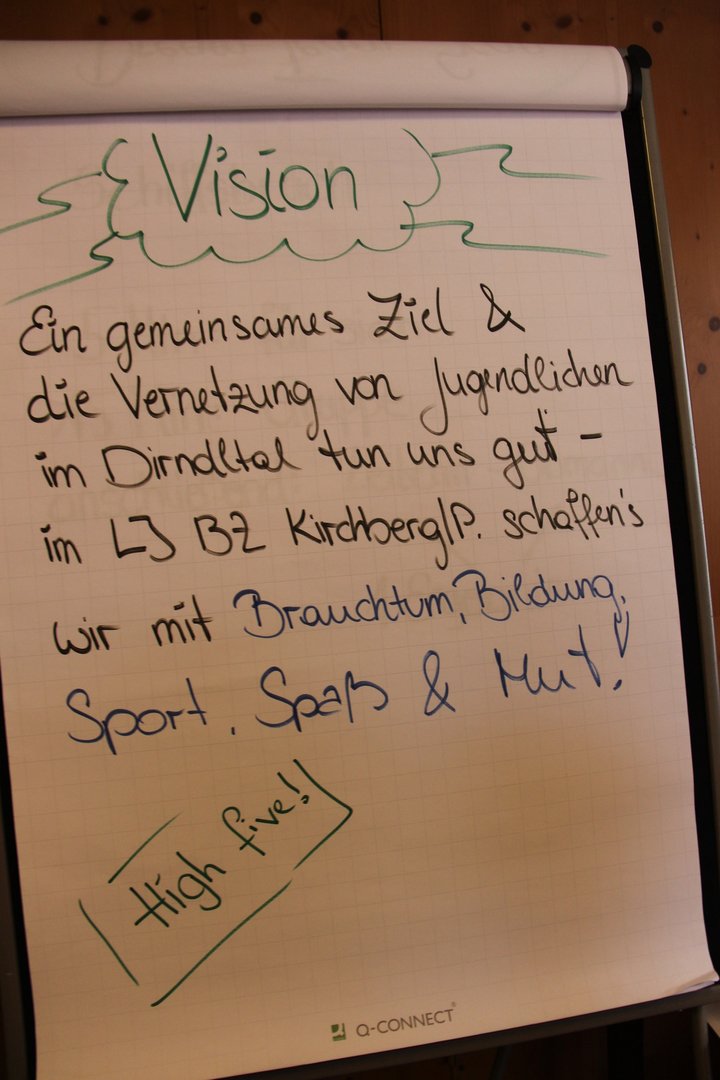 Vision
Ein gemeinsames Ziel &
die Vernetzung von Jugendlichen
im Dirndltal tun uns gut -
im LJ BZ Kirchberg/P. schaffen's
wir mit Brauchtum, Bildung,
Sport, Spaß & Mut!
High five!
Q-CONNECT®